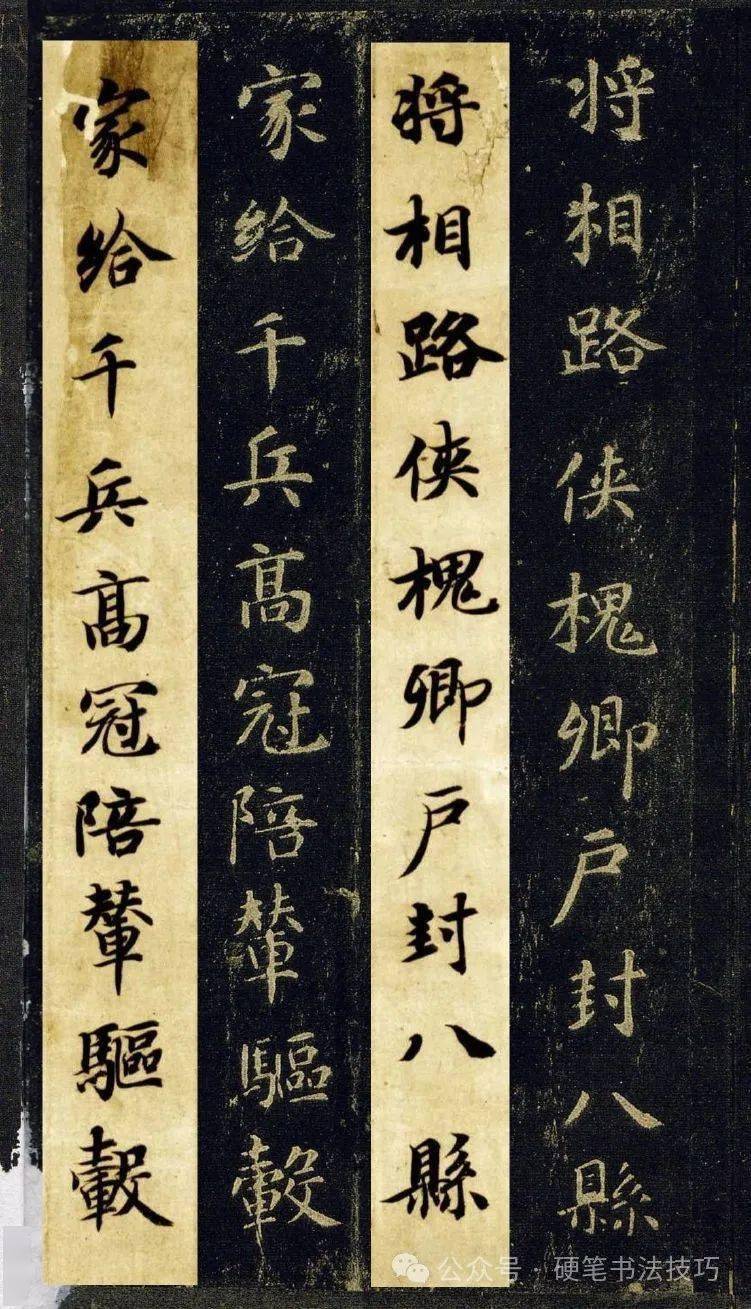 将相路侠槐卿戶封八縣
将相路侠槐卿戶封八縣
家給千兵髙冠陪輦驅轂
家給千兵髙冠陪輦驅轂
公众号·硬笔书法技巧